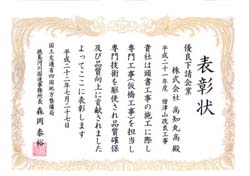 表彰状
優良下請企業
株式会社 高知丸高 殿
平成二十一年度 僧津山改良工事
貴社は頭書工事の施工に際し
専門工事(仮橋工事)を担当
専門技術を駆使され品質確保
及び品質向上に貢献されました
よってここに表彰します
平成二十二年七月二十七日
国土交通省四国地方整備局
徳島河川国道事務所長 森岡泰裕